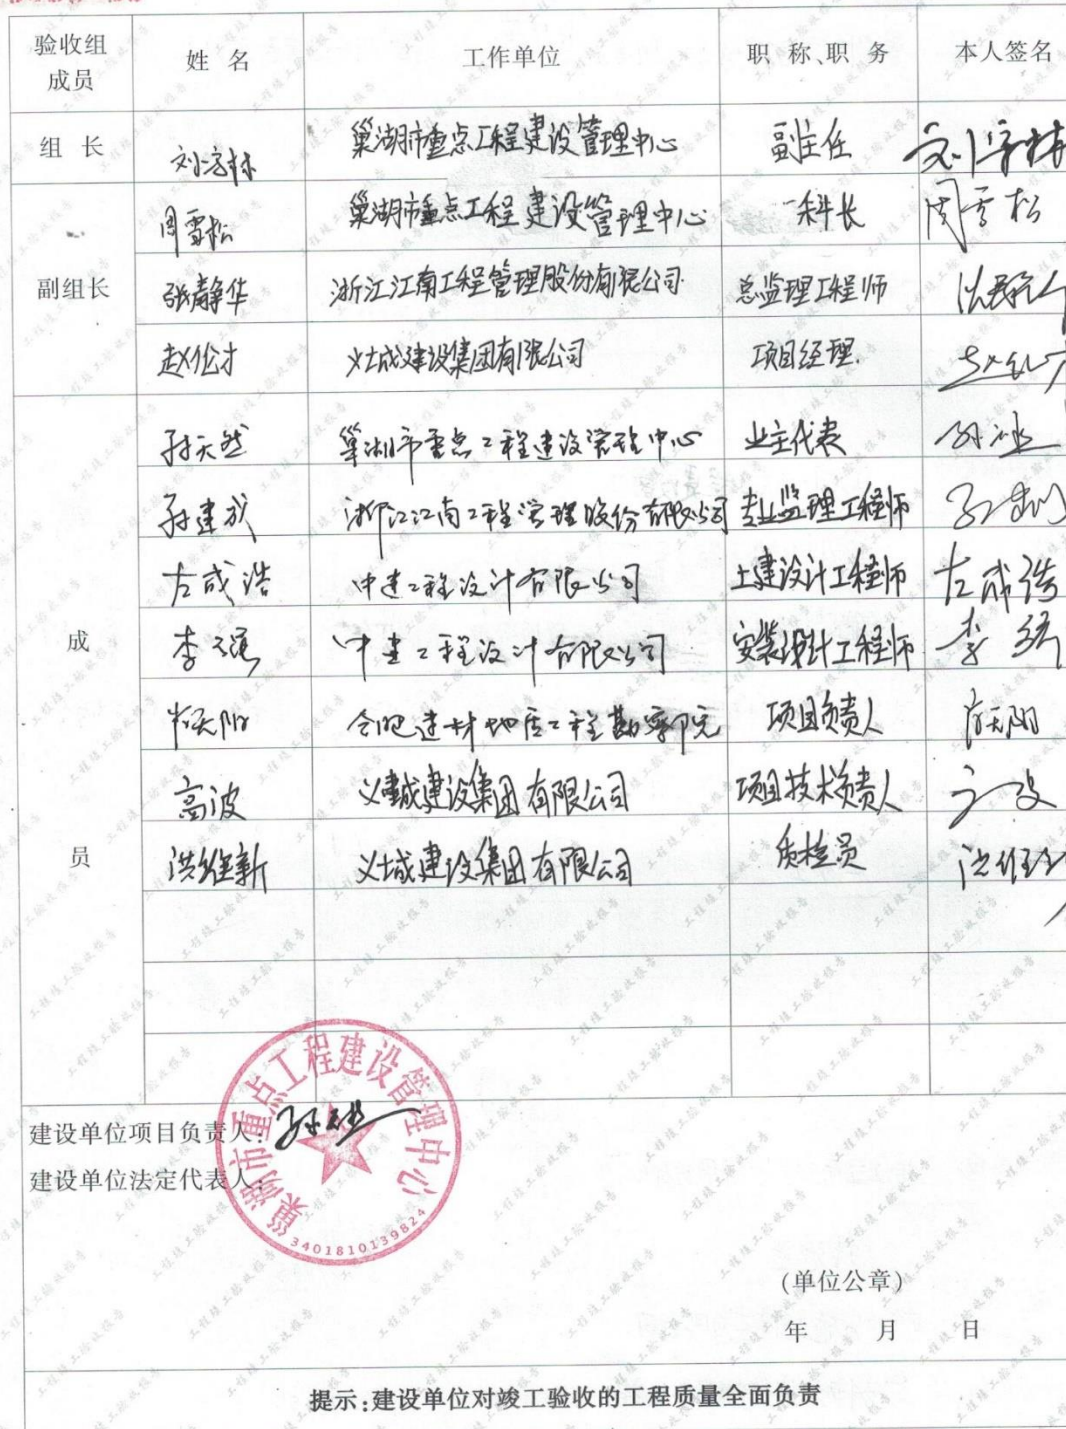 验收组成员 姓名 工作单位 职称、职务 本人签名
组长 刘守林 巢湖市重点工程建设管理中心 副主任
副组长 周雪松 巢湖市重点工程建设管理中心 科长 周雪松
张静华 浙江江南工程管理股份有限公司 总监理工程师
赵伦才 义城建设集团有限公司 项目经理
成员 孙天然 巢湖市重点工程建设管理中心 业主代表
孙建成 浙江江南工程管理股份有限公司 专业监理工程师
左成浩 中建工程设计有限公司 土建设计工程师 左成浩
李 中建工程设计有限公司 安装设计工程师 李
天阳 合肥建材地质工程勘察院 项目负责人 天阳
高波 义城建设集团有限公司 项目技术负责人
洪维新 义城建设集团有限公司 质检员
建设单位项目负责人:
建设单位法定代表人:
巢湖市重点工程建设管理中心
3401810139824
(单位公章)
年 月 日
提示:建设单位对竣工验收的工程质量全面负责